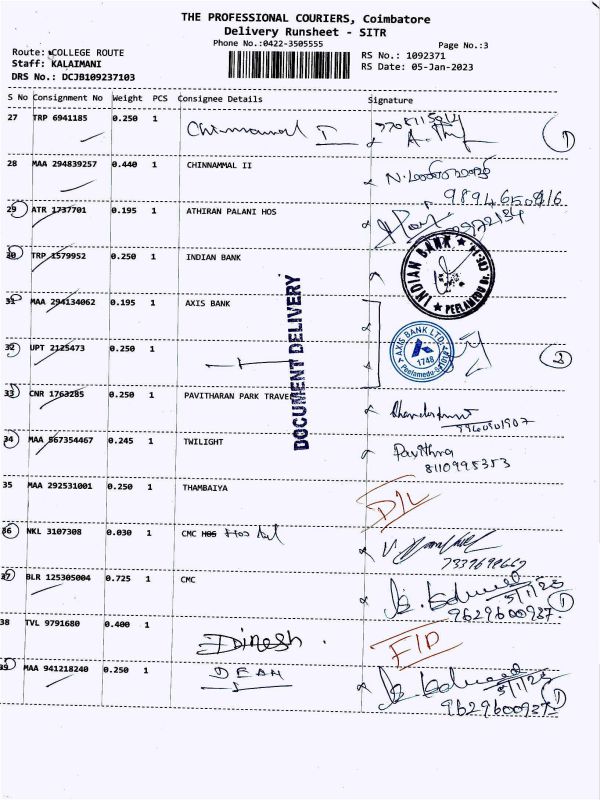 THE PROFESSIONAL COURIERS, Coimbatore
Delivery Runsheet - SITR
Phone No.:0422-3505555
Page No.:3
Route: COLLEGE ROUTE
Staff: KALAIMANI
DRS No.: DCJB109237103
RS No.: 1092371
RS Date: 05-Jan-2023
S No Consignment No Weight PCS Consignee Details Signature
27 TRP 6941185 0.250 1 Chinnamal I
1
28 MAA 294839257 0.440 1 CHINNAMMAL II
29 ATR 1737701 0.195 1 ATHIRAN PALANI HOS
30 TRP 1579952 0.250 1 INDIAN BANK
INDIAN BANK
31 MAA 294134062 0.195 1 AXIS BANK
AXIS BANK LTD.
1748
32 UPT 2125473 0.250 1
2
DOCUMENT DELIVERY
33 CNR 1763285 0.250 1 PAVITHARAN PARK TRAVE
34 MAA 567354467 0.245 1 TWILIGHT Pavithra
8110995353
35 MAA 292531001 0.250 1 THAMBAIYA D/L
36 NKL 3107308 0.030 1 CMC HOS Hostel
37 BLR 125305004 0.725 1 CMC
5/1/23
9629600937. 1
38 TVL 9791680 0.400 1 Dinesh.
39 MAA 941218240 0.250 1 DEAN
5/1/23
9629600937. 1